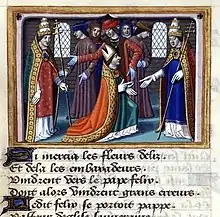 Si mercia les fleurs de liz.
Et de la les embaxadeurs.
Vindrent vers le pape felix
Dont alors vindrent grans erreurs
Ledit felix se portoit pappe